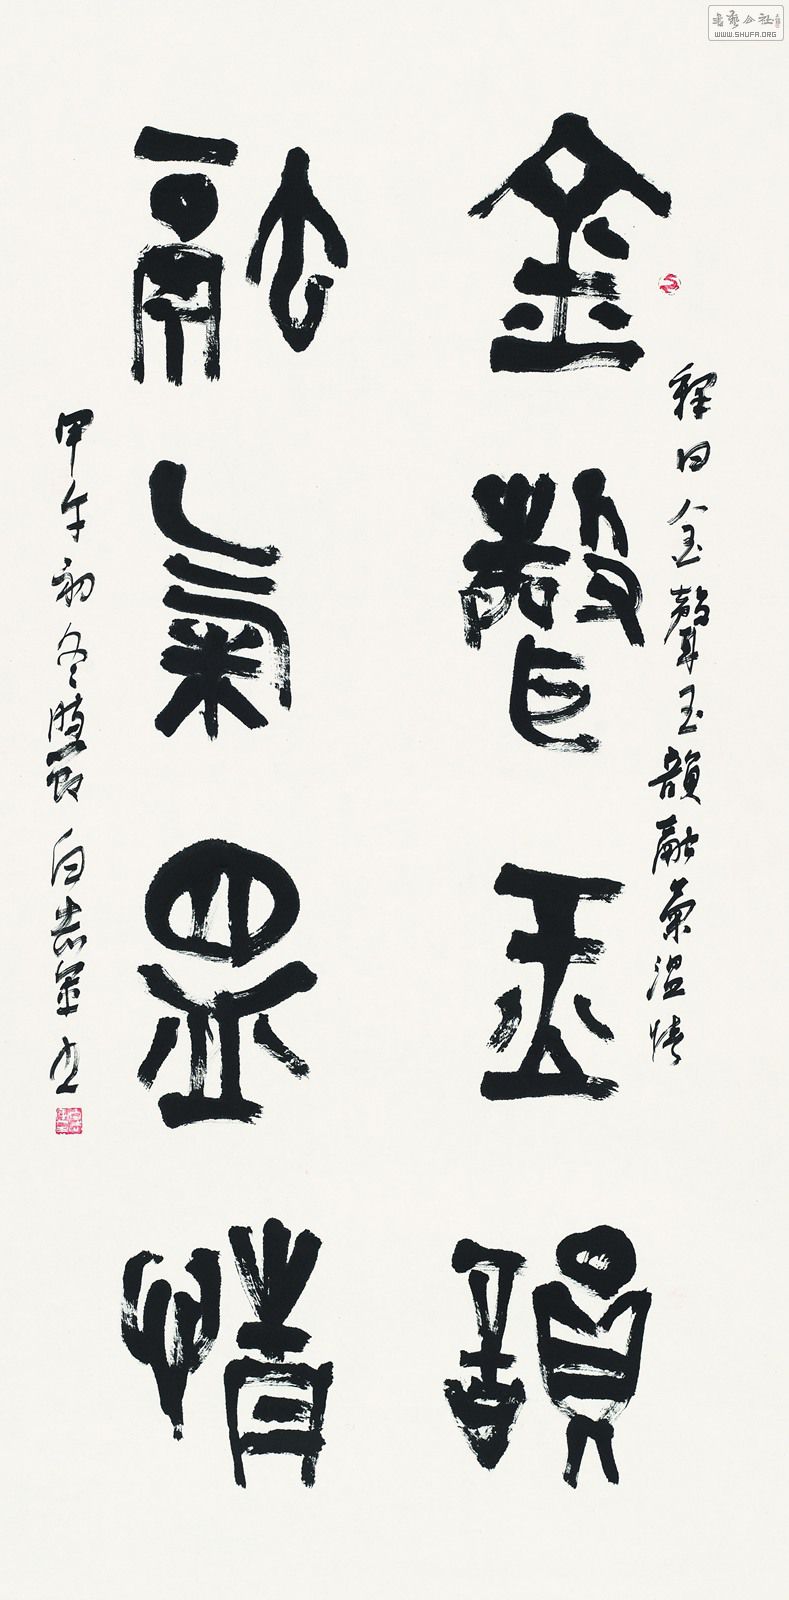 金聲玉韻
融氣昷情
釋曰金聲玉韻融氣溫情
甲午初冬時節白志金書
WWW.SHUFA.ORG